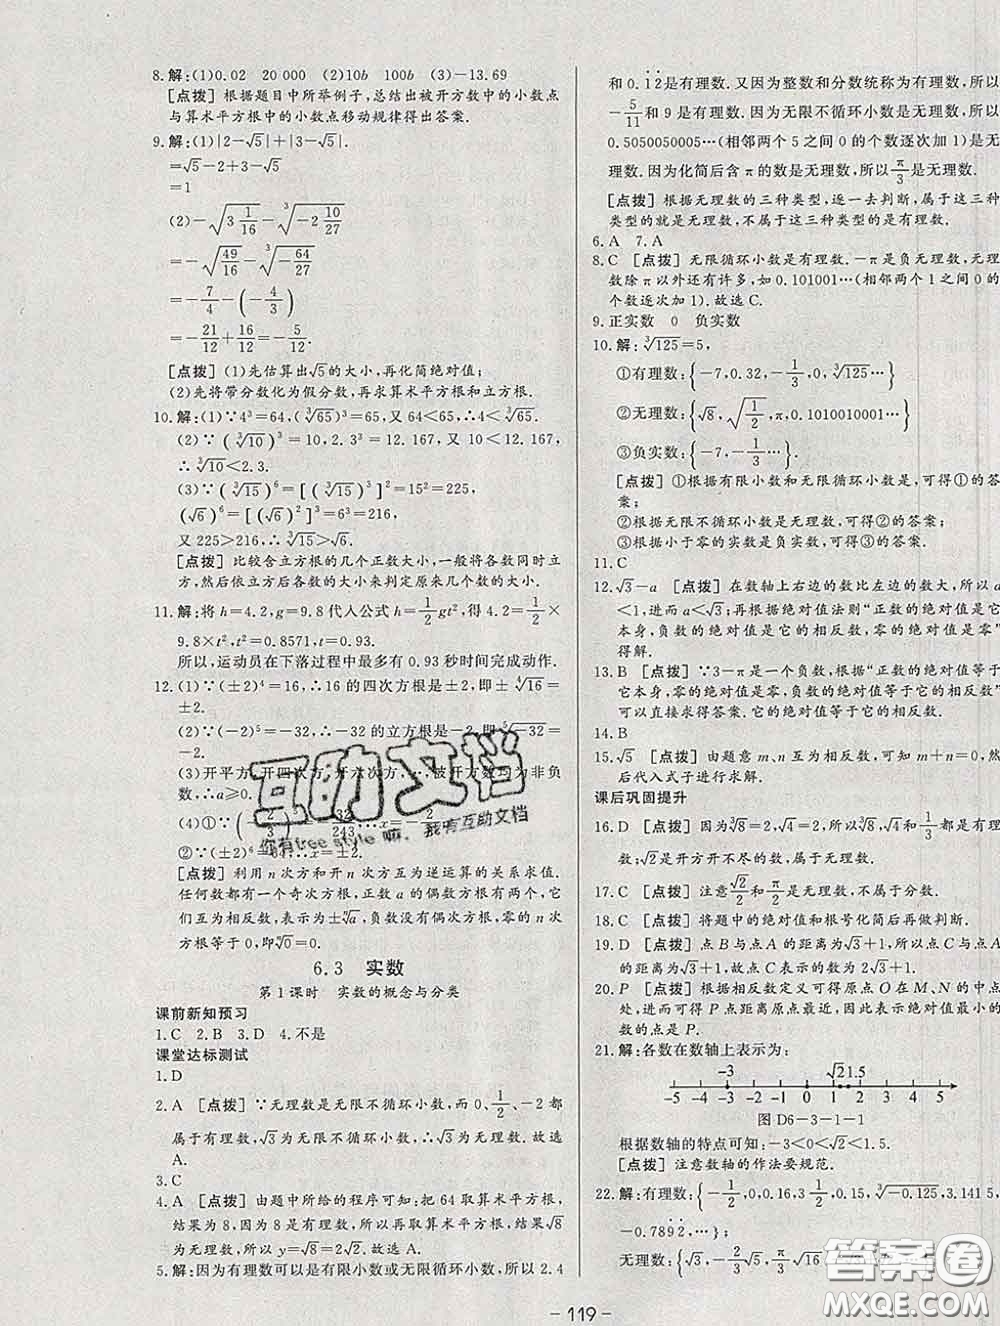 8.解:(1)0.02 20 000 (2)10b 100b (3)-13.69
[点拨] 根据题目中所举例子,总结出被开方数中的小数点
与算术平方根中的小数点移动规律得出答案.
9.解:(1)|2-√5|+|3-√5|.
=√5-2+3-√5
=1
(2)-√(3 1/16)-∛(-2 10/27)
=-√(49/16)-∛(-64/27)
=-7/4-(-4/3)
=-21/12+16/12=-5/12.
[点拨] (1)先估算出√5的大小,再化简绝对值;
(2)先将带分数化为假分数,再求算术平方根和立方根.
10.解:(1)∵4³=64,(∛65)³=65,又 64<65,∴4<∛65.
(2)∵(∛10)³=10,2.3³=12.167,又 10<12.167,
∴∛10<2.3.
(3)∵(∛15)⁶=[(∛15)³]²=15²=225,
(√6)⁶=[(√6)²]³=6³=216,
又 225>216,∴∛15>√6.
[点拨] 比较含立方根的几个正数大小,一般将各数同时立
方,然后依立方后各数的大小来判定原来几个数的大小.
11.解:将 h=4.2,g=9.8代入公式 h=1/2gt²,得 4.2=1/2×
9.8×t²,t²=0.8571,t=0.93.
所以,运动员在下落过程中最多有 0.93 秒时间完成动作.
12.(1)∵(±2)⁴=16,∴16的四次方根是±2,即±∜16=
±2.
(2)∵(-2)⁵=-32,∴-32的立方根是-2,即⁵√-32=
-2.
(3)开平方,开四次方,开六次方,…,被开方数均为非负
数,∴a≥0.
(4)①∵
②∵(±2)⁶
[点拨] 利用 n 次方和开 n 次方互为逆运算的关系求值.
任何数都有一个奇次方根,正数 a 的偶数方根有两个,它
们互为相反数,表示为±ⁿ√a,负数没有偶次方根,零的 n 次
方根等于 0,即ⁿ√0=0.
6.3 实数
第1课时 实数的概念与分类
课前新知预习
1.C 2.B 3.D 4.不是
课堂达标测试
1.D
2.A [点拨] ∵无理数是无限不循环小数,而 0、1/2、-2 都
属于有理数,√3为无限不循环小数,∴√3为无理数.故选
A.
3.C
4.A [点拨] 由题中所给的程序可知:把 64 取算术平方根,
结果为 8,因为 8 是有理数,所以再取算术平方根,结果√8
为无理数,所以 y=√8=2√2.故选 A.
5.解:因为有理数可以是有限小数或无限循环小数,所以 2.4
和 0.1̇2̇ 是有理数.又因为整数和分数统称为有理数,所以
-5/11和 9 是有理数.因为无限不循环小数是无理数,所以
0.5050050005…(相邻两个 5 之间 0 的个数逐次加 1)是无
理数.因为化简后含 π 的数是无理数,所以π/3是无理数.
[点拨] 根据无理数的三种类型,逐一去判断,属于这三种
类型的就是无理数,不属于这三种类型的是有理数.
6.A 7.A
8.C [点拨] 无限循环小数是有理数.-π是负无理数,无理
数除 π 以外还有许多,如 0.101001…(相邻两个 1 之间 0 的
个数逐次加 1).故选 C.
9.正实数 0 负实数
10.解:∛125=5,
①有理数:{-7,0.32,-1/3,0,∛125…}
②无理数:{√8,√(1/2),π,0.1010010001…}
③负实数:{-7,-1/3…}.
[点拨] ①根据有限小数和无限循环小数是有理数,可得①的答
案;
②根据无限不循环小数是无理数,可得②的答案;
③根据小于零的实数是负实数,可得③的答案.
11.C
12.√3-a [点拨] 在数轴上右边的数比左边的数大,所以 a
<1,进而 a<√3;再根据绝对值法则“正数的绝对值是它
本身,负数的绝对值是它的相反数,零的绝对值是零”
得解.
13.B [点拨] ∵3-π是一个负数,根据“正数的绝对值等于
它本身,零的绝对值是零,负数的绝对值等于它的相反数”
可以直接求得答案.它的绝对值等于它的相反数.
14.B
15.√5 [点拨] 由题意 m、n 互为相反数,可知 m+n=0,然
后代入式子进行求解.
课后巩固提升
16.D [点拨] 因为∛8=2,√4=2,所以∛8和√4和1/3都是有理
数;√2是开方开不尽的数,属于无理数.
17.C [点拨] 注意√2/2和π/2是无理数,不属于分数.
18.C [点拨] 将题中的绝对值和根号化简后再做判断.
19.D [点拨] 点 B 与点 A 的距离为√3+1,所以点 C 与点 A
的距离也为√3+1,所以点 C 表示的数为 2√3+1.
20.P [点拨] 根据相反数定义可得原点 O 在 M、N 的中点
处,进而可得 P 点距离原点最近,因此表示绝对值最小的
数的点是 P.
21.解:各数在数轴上表示为:
-3 √2 1.5
-5 -4 -3 -2 -1 0 1 2 3 4 5
图 D6-3-1-1
根据数轴的特点可知:-3<0<√2<1.5.
[点拨] 注意数轴的作法要规范.
22.解:有理数:{-1/2,0,0.16,3 1/2,0.15,∛-0.125,3.141 5,
-0.7̇892̇,…};
无理数:{√3,-2/3√5,
互助文档
你有free style 嘛,我有互助文档
答案圈
MXQE.COM
- 119 -